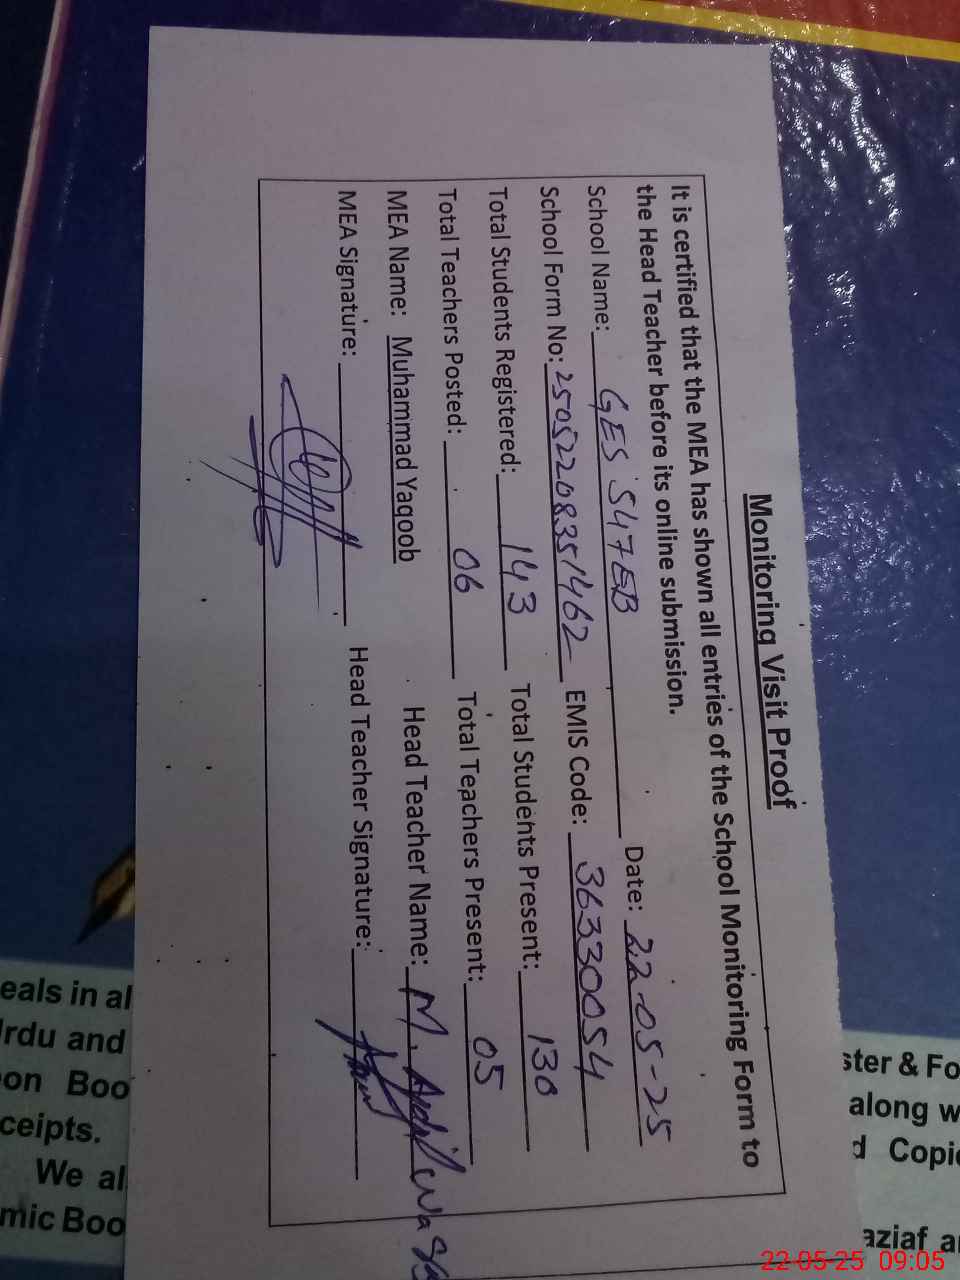 Monitoring Visit Proof
It is certified that the MEA has shown all entries of the School Monitoring Form to
the Head Teacher before its online submission.
School Name: GES 547EB Date: 22-05-25
School Form No: 25052208351462 EMIS Code: 36330054
Total Students Registered: 143 Total Students Present: 130
Total Teachers Posted: 06 Total Teachers Present: 05
MEA Name: Muhammad Yaqoob Head Teacher Name: M.
MEA Signature: Head Teacher Signature:
eals in al
Irdu and
on Boo
ceipts.
We al
mic Boo
ster & Fo
along w
d Copi
aziaf a
22-05-25 09:05